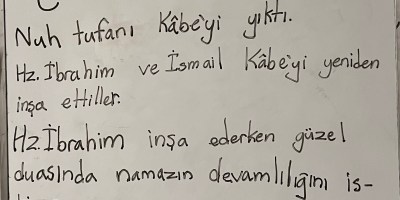 Nuh tufanı Kâbe'yi yıktı.
Hz. İbrahim ve İsmail Kâbe'yi yeniden
inşa ettiller.
Hz. İbrahim inşa ederken güzel
duasında namazın devamlılığını is-